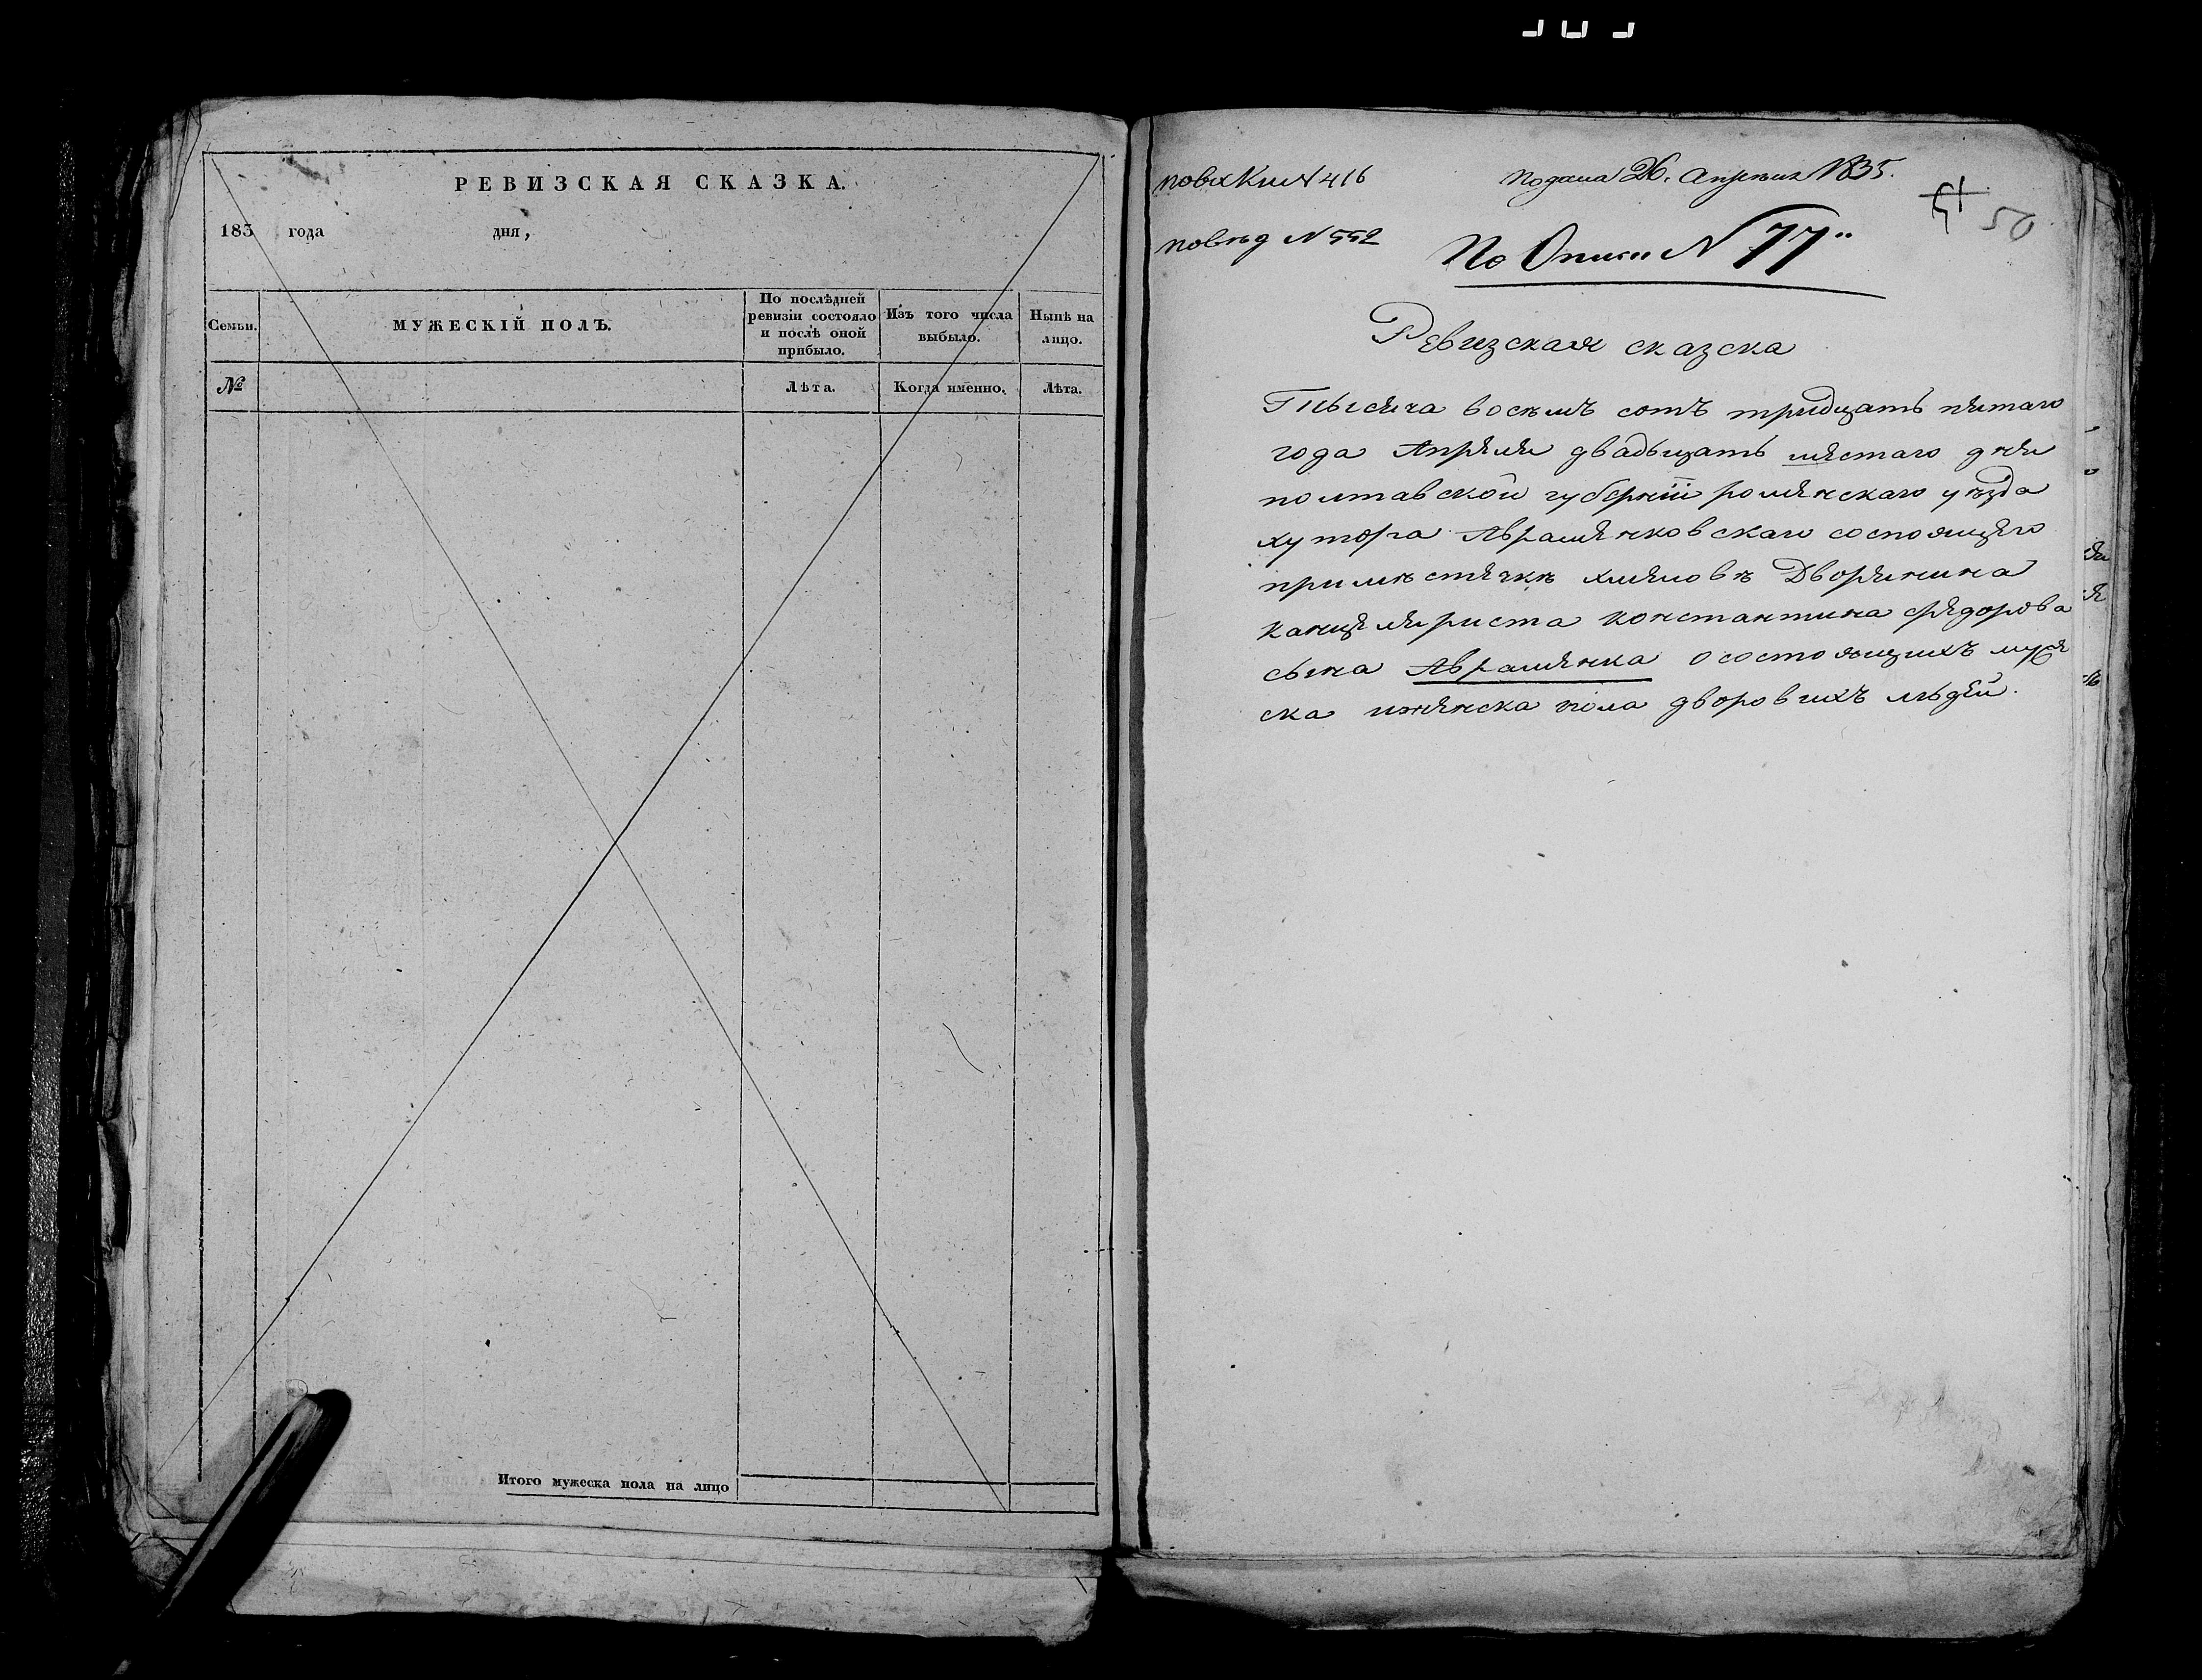 РЕВИЗСКАЯ СКАЗКА.
183 года дня,
Семьи. МУЖЕСКІЙ ПОЛЪ. По послѣдней ревизіи состояло и послѣ оной прибыло. Изъ того числа выбыло. Нынѣ на лицо.
№ Лѣта. Когда именно. Лѣта.
Итого мужеска пола на лицо
N 416
Подана 26. Апрѣля 1835.
51 50
N 552
По Описи N 77
Ревизская сказска
Тисяча восемъ сотъ тридцать пятаго
года Апреля двадьцать шестаго дня
полтавской губернїи роменскаго уѣзда
хутора Авраменковскаго состоящего
приместечкѣ хмеловѣ Дворянина
канцеляриста константина федорова
сына Авраменка о состоящихъ муже
ска иженска пола дворовихъ людей.